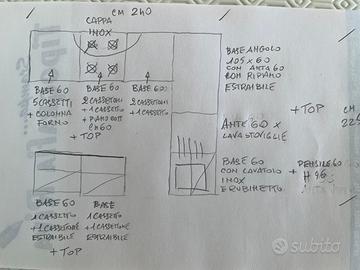 CM 240
CAPPA
INOX
BASE 60
5 CASSETTI
+ COLONNA
FORNO
BASE 60
2 CASSETTONI
1 CASSETTO
+ PIANO COTT
CM 60
BASE 60
2 CASSETTONI
+ 1 CASSETTO
+ TOP
BASE ANGOLO
105 X 60
CON ANTA 60
CON RIPIANO
ESTRAIBILE
+ TOP
CM
ANTE 60 X
LAVASTOVIGLIE
BASE 60
CON LAVATOIO
INOX
E RUBINETTO
+ PENSILE 60
H 96
BASE 60
1 CASSETTO
+ 1 CASSETTONE
ESTRAIBILE
BASE
1 CASSETTO
+ 1 CASSETTONE
ESTRAIBILE
+ TOP
subito